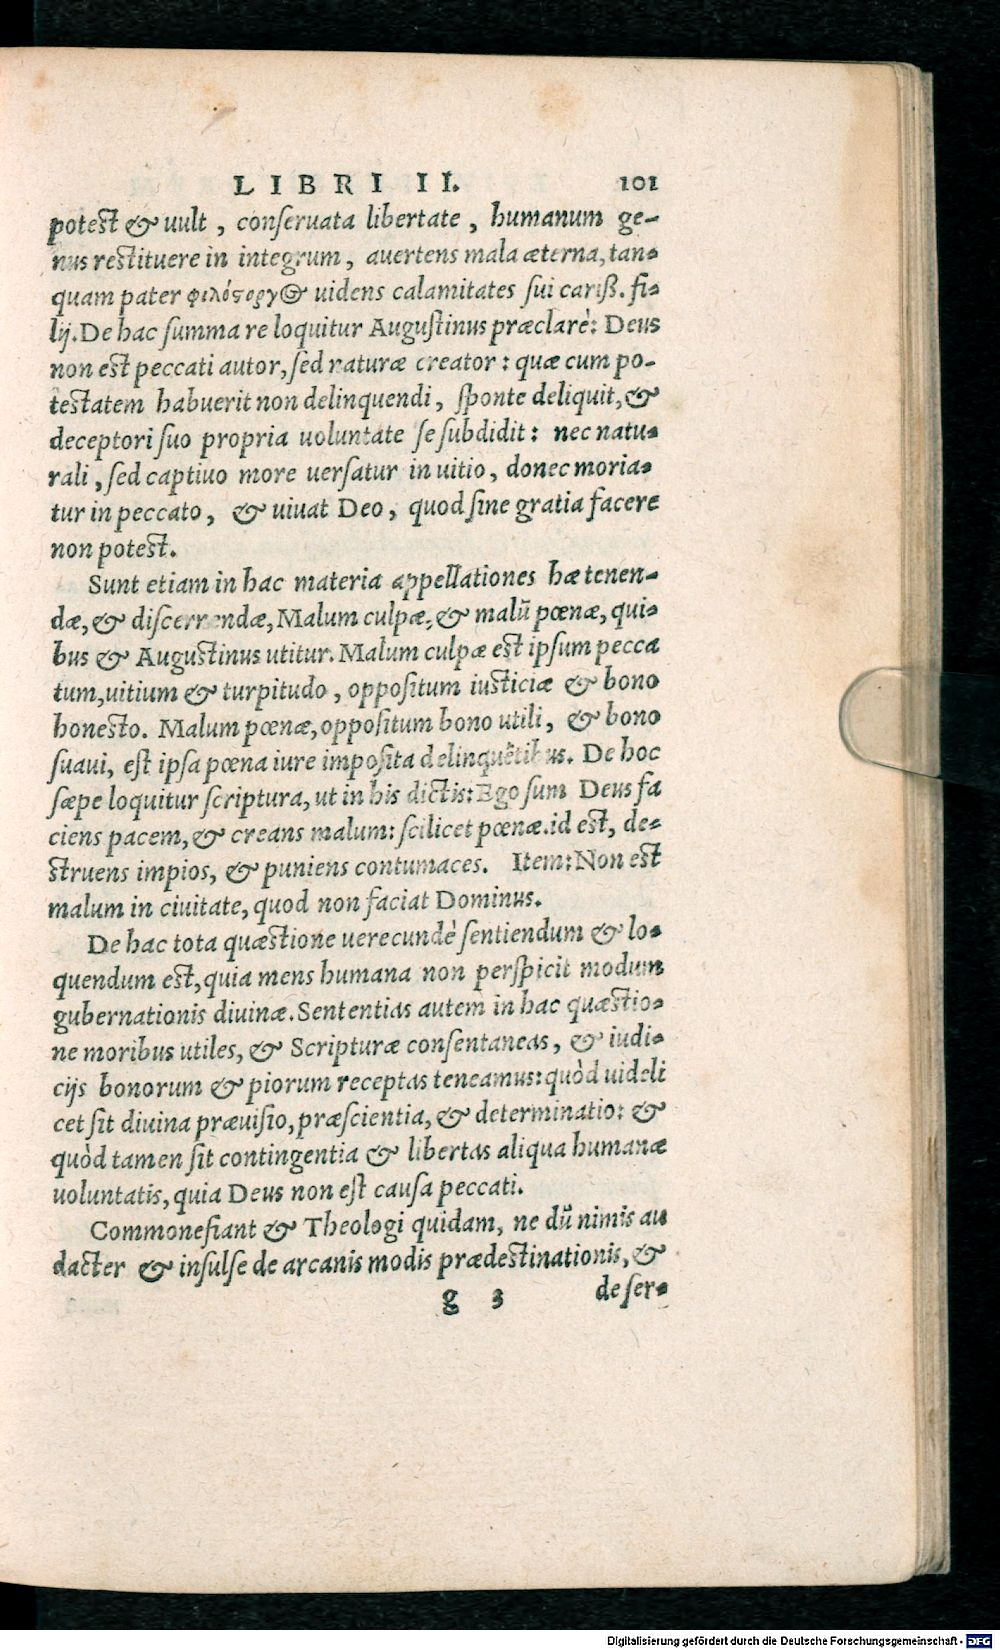 LIBRI II. 101
potest & uult, conseruata libertate, humanum ge-
nus restituere in integrum, auertens mala æterna, tan-
quam pater φιλόστοργος uidens calamitates sui cariß. fi-
lij. De hac summa re loquitur Augustinus præclarè: Deus
non est peccati autor, sed naturæ creator: quæ cum po-
testatem habuerit non delinquendi, sponte deliquit, &
deceptori suo propria uoluntate se subdidit: nec natu-
rali, sed captiuo more uersatur in uitio, donec moria-
tur in peccato, & uiuat Deo, quod sine gratia facere
non potest.
Sunt etiam in hac materia appellationes hæ tenen-
dæ, & discernendæ, Malum culpæ, & malū pœnæ, qui-
bus & Augustinus utitur. Malum culpæ est ipsum pecca
tum, uitium & turpitudo, oppositum iusticiæ & bono
honesto. Malum pœnæ, oppositum bono utili, & bono
suaui, est ipsa pœna iure imposita delinquētibus. De hoc
sæpe loquitur scriptura, ut in his dictis: Ego sum Deus fa
ciens pacem, & creans malum: scilicet pœnæ. id est, de-
struens impios, & puniens contumaces. Item: Non est
malum in ciuitate, quod non faciat Dominus.
De hac tota quæstione uerecundè sentiendum & lo-
quendum est, quia mens humana non perspicit modum
gubernationis diuinæ. Sententias autem in hac quæstio-
ne moribus utiles, & Scripturæ consentaneas, & iudi-
cijs bonorum & piorum receptas teneamus: quòd uideli
cet sit diuina præuisio, præscientia, & determinatio: &
quòd tamen sit contingentia & libertas aliqua humanæ
uoluntatis, quia Deus non est causa peccati.
Commonefiant & Theologi quidam, ne dū nimis au
dacter & insulse de arcanis modis prædestinationis, &
g 3 de ser-
Digitalisierung gefördert durch die Deutsche Forschungsgemeinschaft - DFG